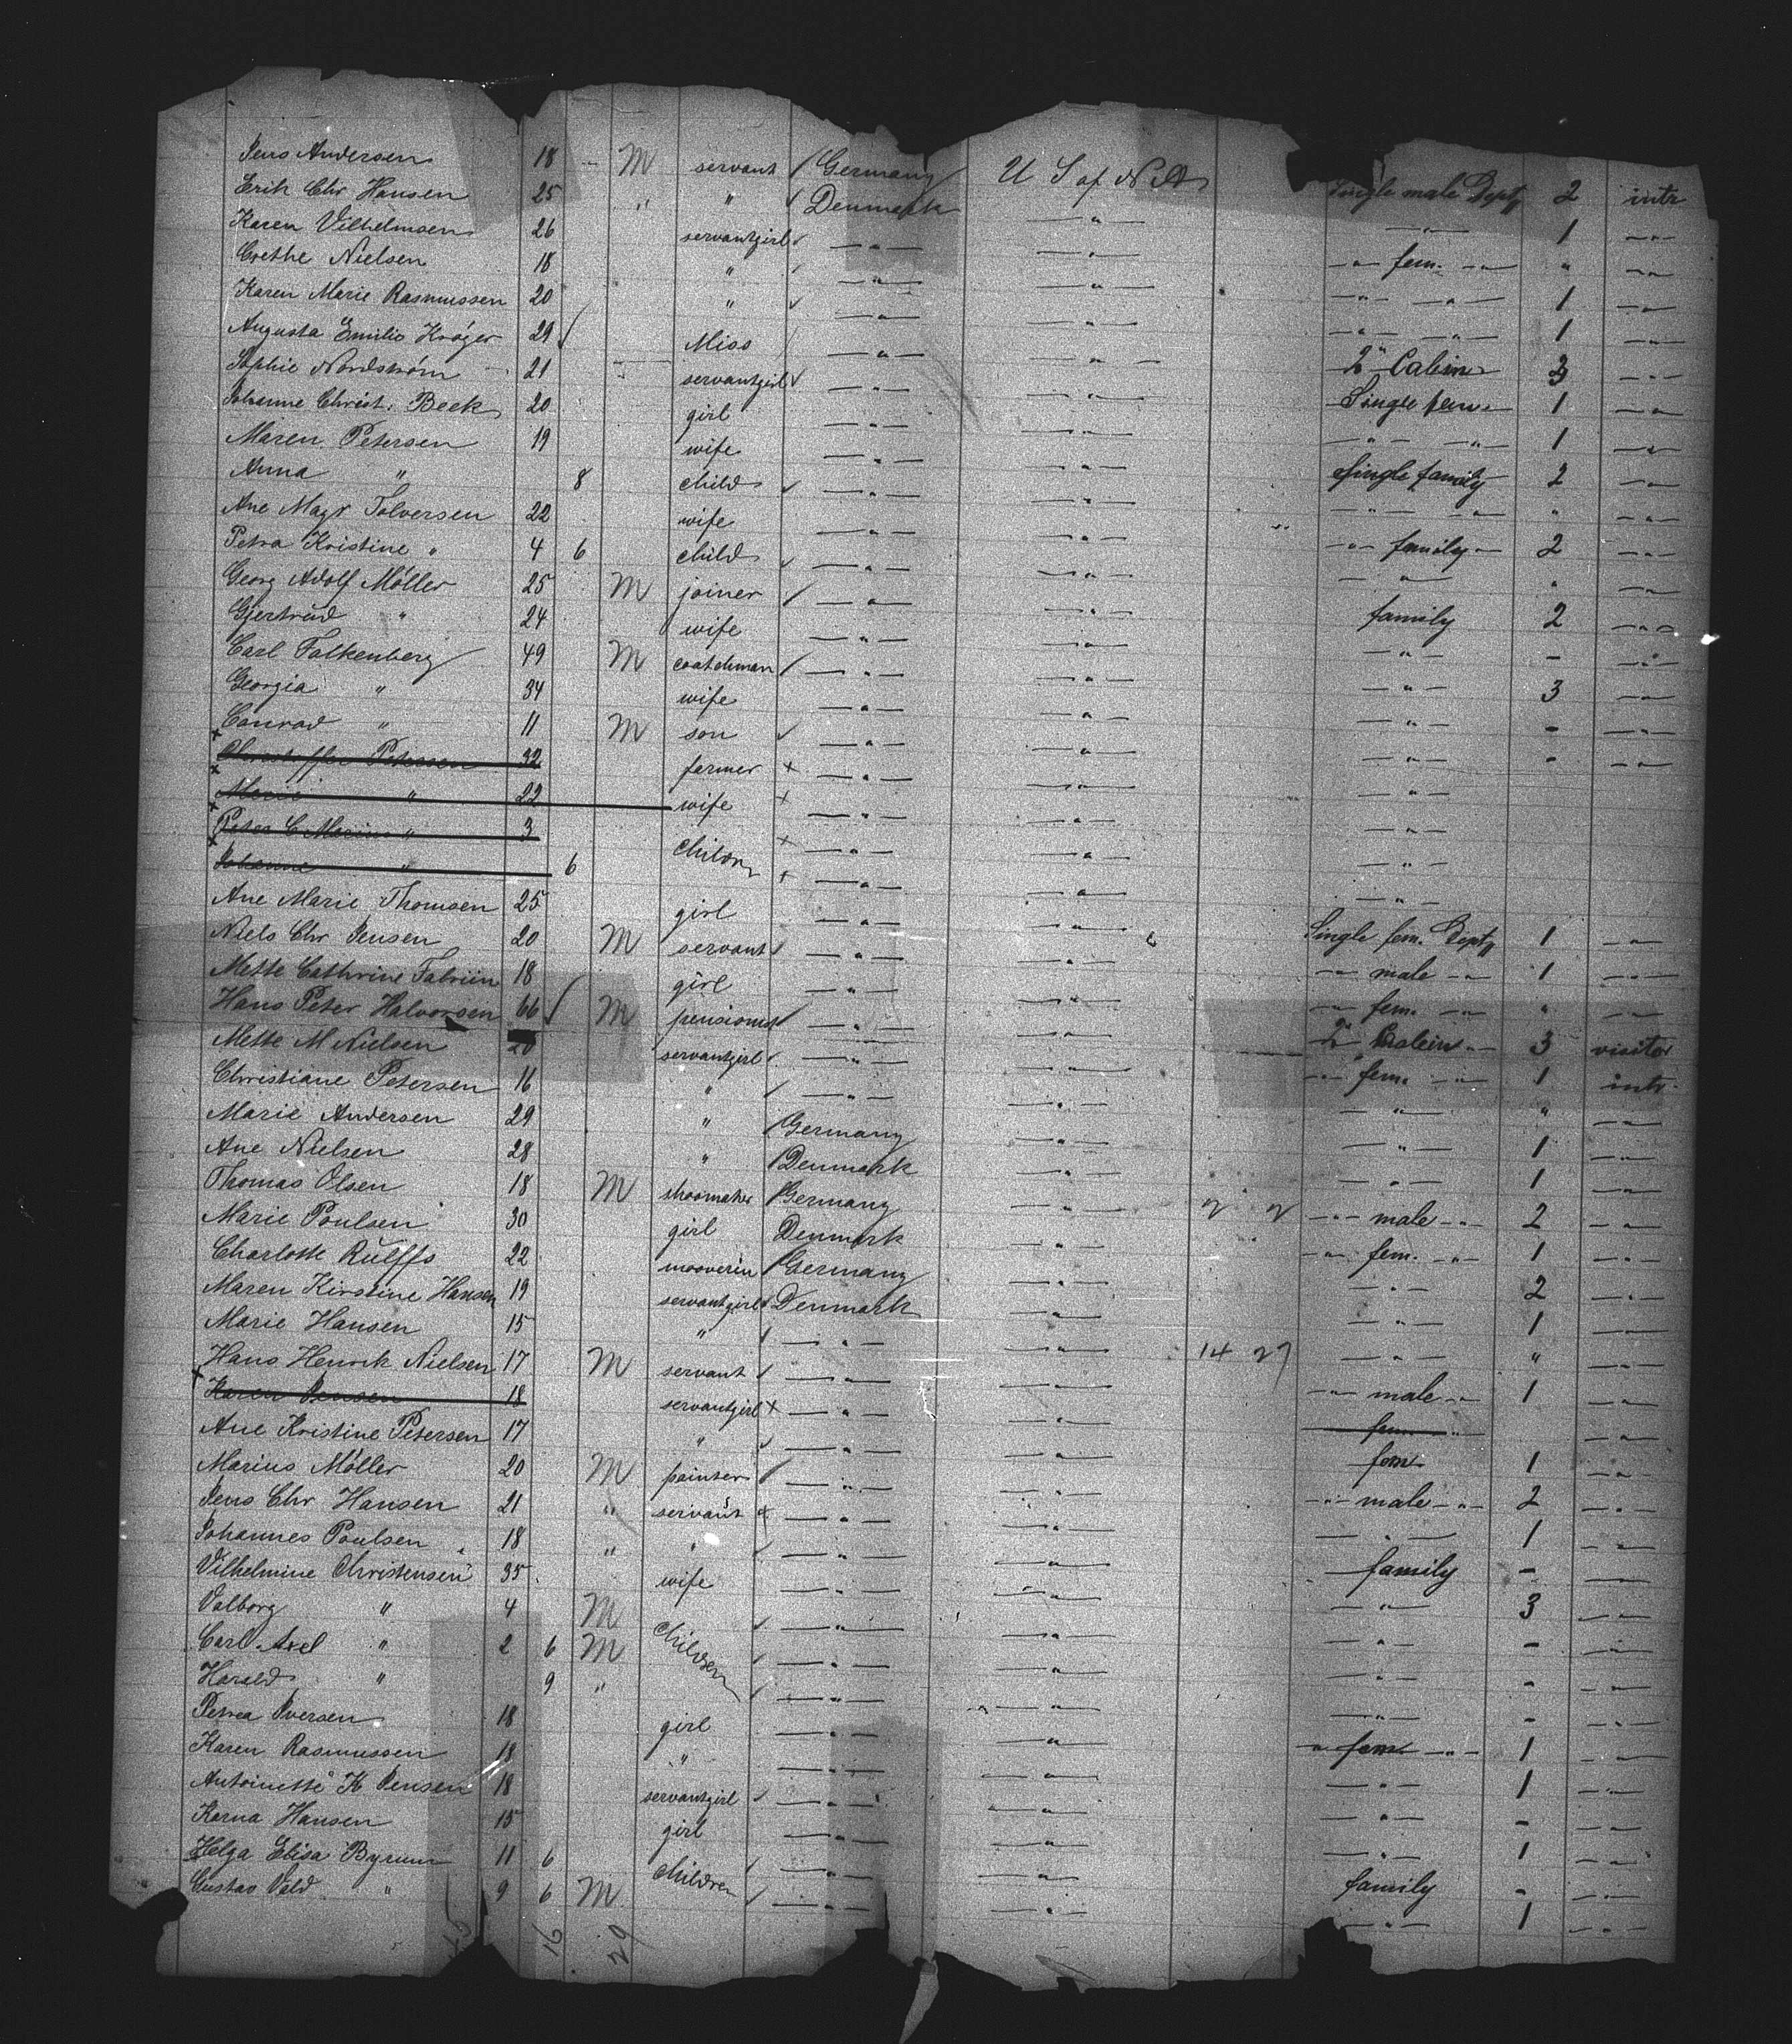 Jens Andersen 18 — M servant / Germany U S of N A Single male Deptg 2 intr
Erik Chr Hansen 25 " " ✓ Denmark — " — — " — 1 — " —
Karen Vilhelmsen 26 servantgirl ✓ — " — — " — — " — fem. — " — " — " —
Grethe Nielsen 18 " ✓ — " — — " — — " — — " — 1 — " —
Karen Marie Rasmussen 20 " ✓ — " — — " — — " — — " — 1 — " —
Augusta Emilie Kröger 29 ✓ Miss / — " — — " — 2" Cabin 3 — " —
Sophie Nordström 21 servantgirl ✓ — " — — " — Single fem. 1 — " —
Johanne Christ. Beck 20 girl — " — — " — — " — — " — 1 — " —
Maren Petersen 19 wife — " — — " — Single family 2 — " —
Anna " 8 child ✓ — " — — " — — " — — " — " — " —
Ane Magr Tolversen 22 wife — " — — " — — " — family — 2 — " —
Petra Kristine " 4 6 child ✓ — " — — " — — " — " — " —
Georg Adolf Möller 25 M joiner / — " — — " — family 2 — " —
Gjertrud " 24 wife — " — — " — — " — - — " —
Carl Falkenberg 49 M coatchman / — " — — " — — " — 3 — " —
Georgia " 34 wife — " — — " — — " — - — " —
Conrad " 11 M son ✓ — " — — " — — " — - — " —
x Christoffer Petersen 32 farmer x — " — — " — — " —
x Marie " 22 wife x — " — — " — — " —
x Peter C Marius " 3 childrn x — " — — " — — " —
x Johanne " 6 x — " — — " — — " —
Ane Marie Thomsen 25 girl — " — — " — Single fem. Deptg 1 — " —
Niels Chr Jensen 20 M servant ✓ — " — — " — — " — male — " — 1 — " —
Mette Cathrine Fabriin 18 girl — " — — " — — " — fem. — " — " — " —
Hans Peter Halvorsen 66 ✓ M pensionist / — " — — " — 2" Cabin — 3 visitor
Mette M Nielsen 20 servantgirl ✓ — " — — " — — " — fem. — " — 1 intr.
Christiane Petersen 16 " / — " — — " — — " — " — " —
Marie Andersen 29 " / Germany — " — — " — 1 — " —
Ane Nielsen 28 " / Denmark — " — — " — 1 — " —
Thomas Olsen 18 M shoomaker / Germany — " — — " — male — " — 2 — " —
Marie Poulsen 30 girl Denmark — " — — " — fem. — " — 1 — " —
Charlotte Rülffs 22 mooverin / Germany — " — — " — 2 — " —
Maren Kirstine Hansen 19 servantgirl ✓ Denmark — " — — " — 1 — " —
Marie Hansen 15 " ✓ — " — — " — 14 27 — " — " — " —
Hans Henrik Nielsen 17 M servant ✓ — " — — " — — " — male — " — 1 — " —
x Karen Jensen 18 servantgirl x — " — — " — fem. — " — — " —
Ane Kristine Petersen 17 " ✓ — " — — " — fem. 1 — " —
Marius Möller 20 M painter / — " — — " — — " — male — " — 2 — " —
Jens Chr Hansen 21 " servant x — " — — " — — " — 1 — " —
Johannes Poulsen 18 " " ✓ — " — — " — family - — " —
Vilhelmine Christensen 35 wife — " — — " — — " — 3 — " —
Valborg " 4 M children ✓ — " — — " — — " — - — " —
Carl Axel " 2 6 M ✓ — " — — " — — " — - — " —
Harald " 9 " ✓ — " — — " — — " — - — " —
Petrea Iversen 18 girl — " — — " — — " — fem. — " — 1 — " —
Karen Rasmussen 18 " — " — — " — — " — 1 — " —
Antoinette K Jensen 18 servantgirl ✓ — " — — " — — " — - — " —
Karna Hansen 15 girl — " — — " — — " — 1 — " —
Helga Elisa Byrum 11 6 children ✓ — " — — " — family - — " —
Gustav Vald " 9 6 M ✓ — " — — " — — " — 1 — " —
16 29